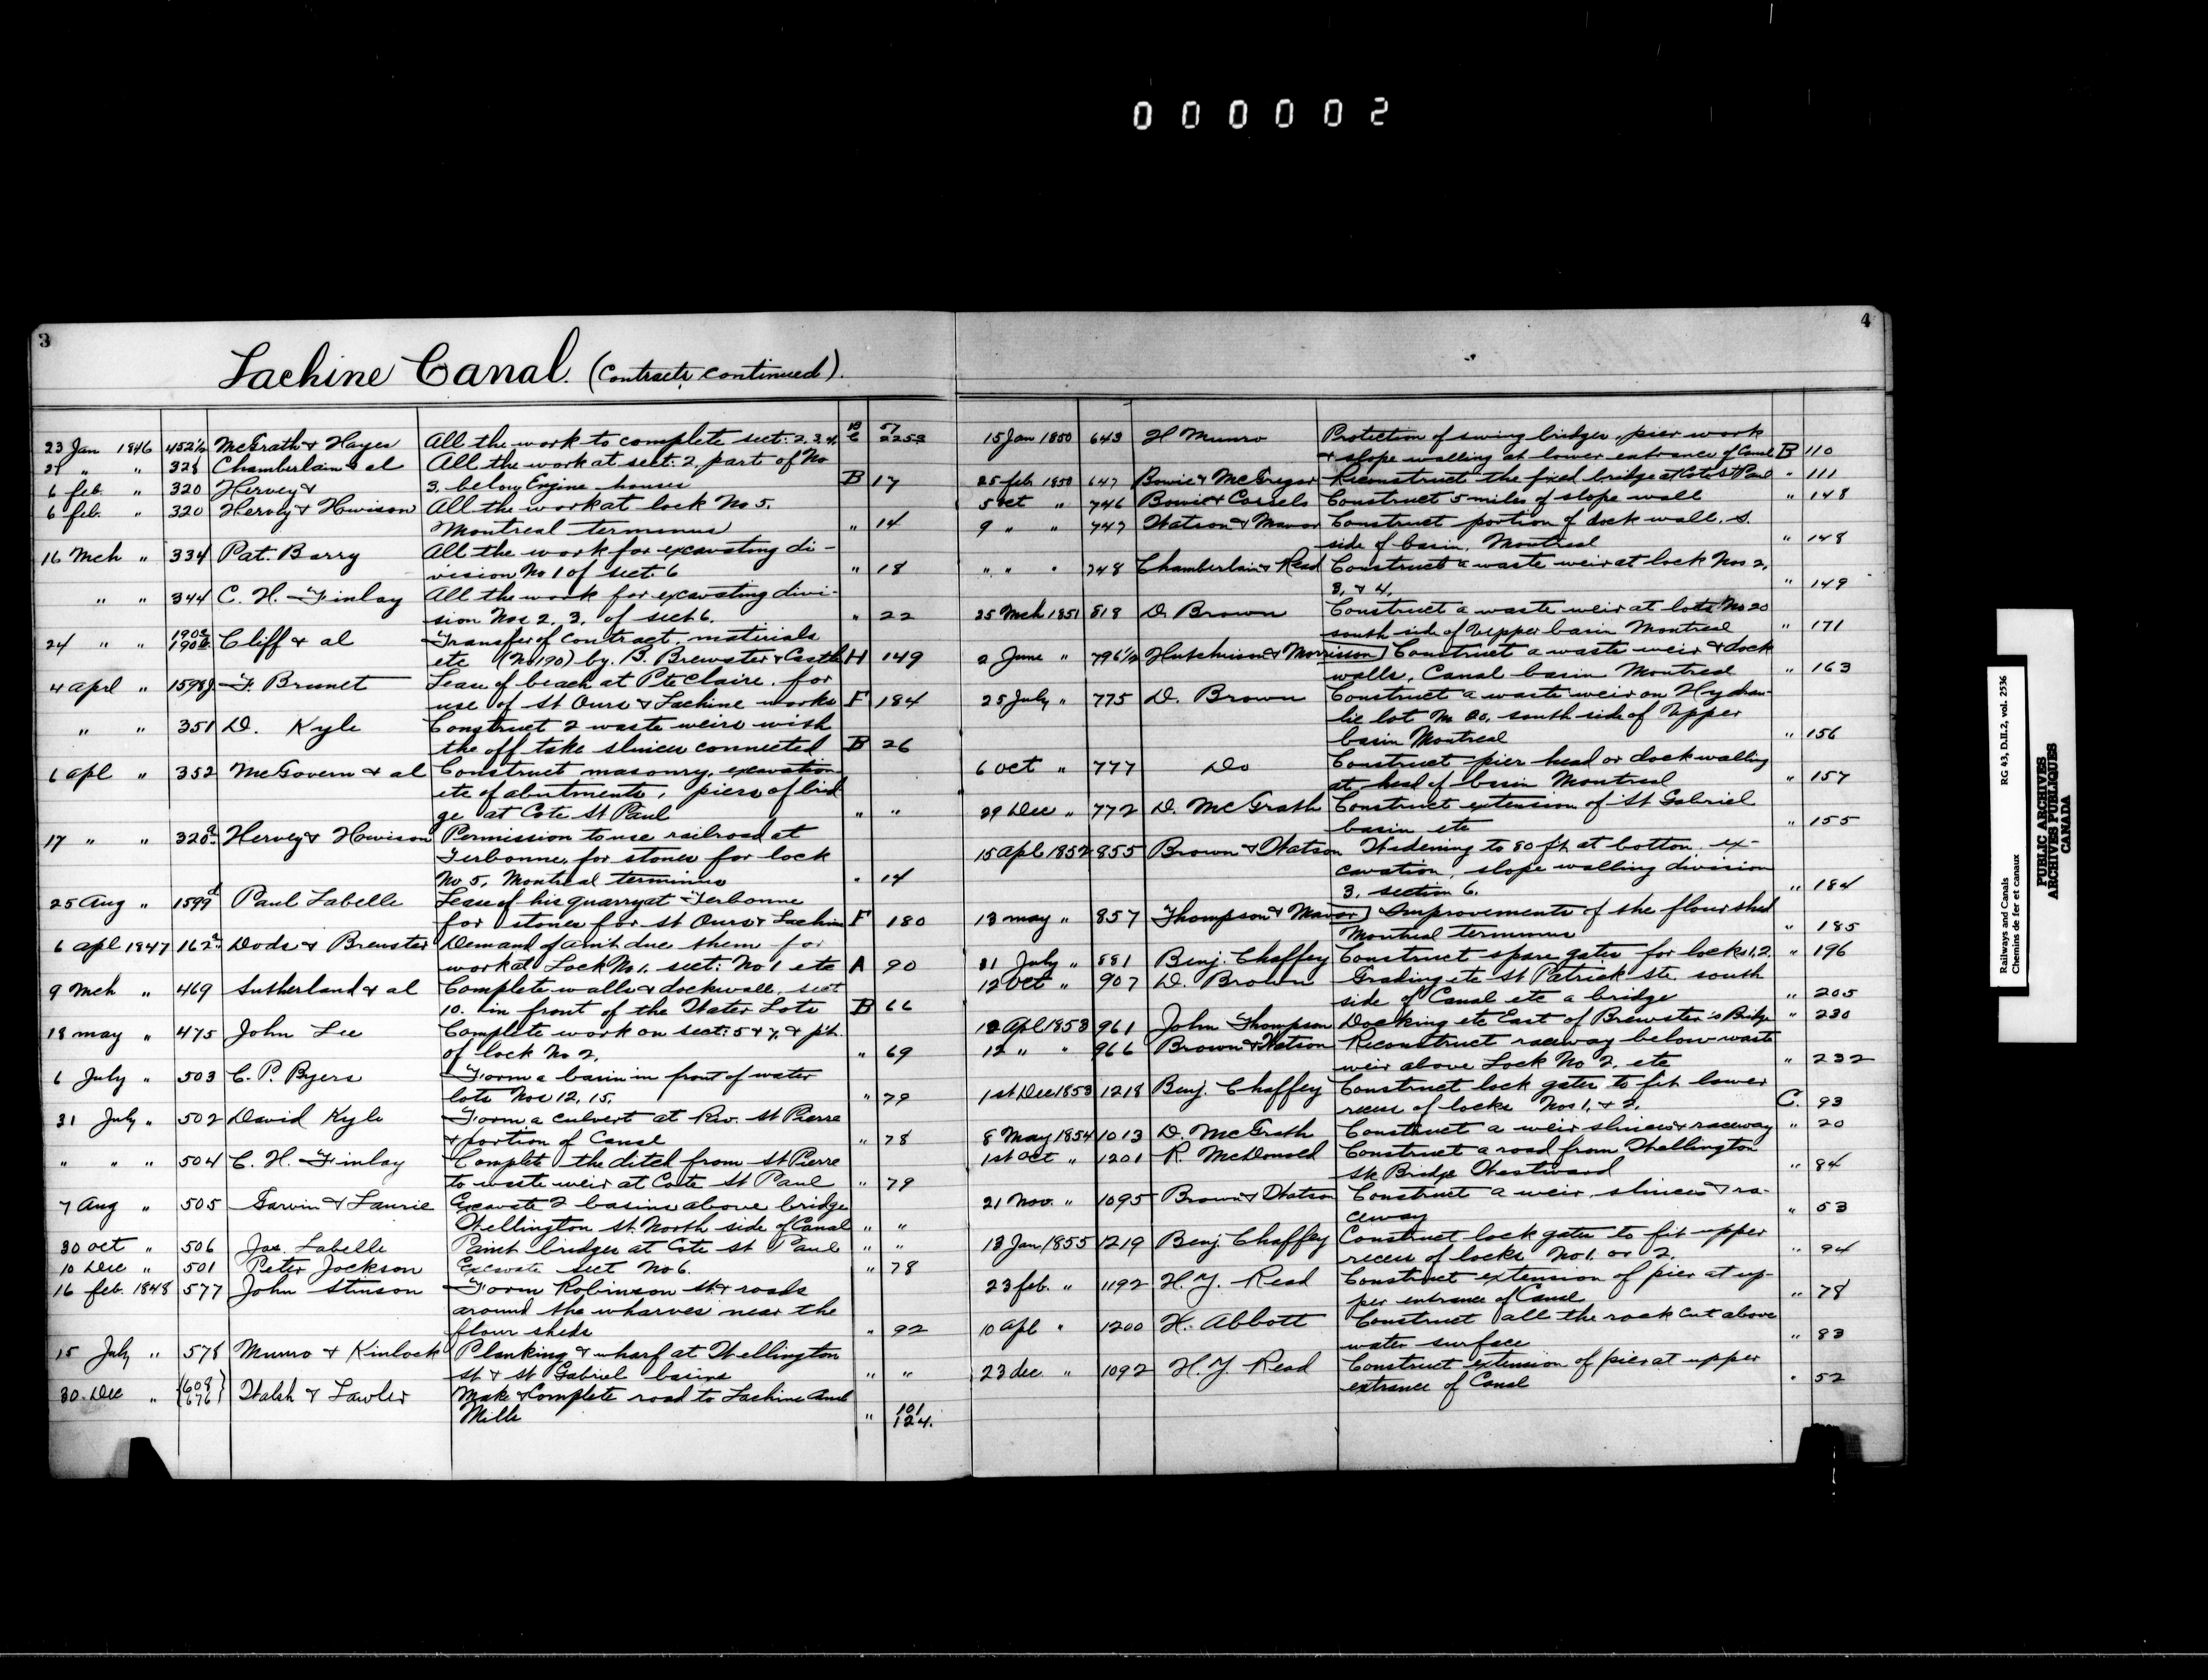 000002
3
Lachine Canal. (Contracts continued).
23 Jan 1846 452½ McGrath & Hayes All the work to complete sect: 2.3.4. B C 57 2253
21 " " 328 Chamberlain & al All the work at sect: 2. part of No
6 feb. " 320 Hervey & 3. below Engine houses B 17
6 feb. " 320 Hervey & Howison All the work at lock No 5.
Montreal terminus " 14
16 Mch " 334 Pat. Barry All the work for excavating di-
vision No 1 of sect. 6 " 18
" " 344 C. H. Finlay All the work for excavating divi-
sion Nos 2. 3. of sect 6. " 22
24 " " Cliff & al Transfer of contract, materials
etc (No 190) by B. Brewster & Castle H 149
4 aprl " 1598 F. Brunet Lease of beach at Pte Claire. for
use of St Ours & Lachine works F 184
" " 351 D. Kyle Construct 2 waste weirs with
the off take sluices connected B 26
6 apl " 352 McGovern & al Construct masonry, excavation
etc of abutments, piers of brid
ge at Cote St Paul " "
17 " " 320a Hervey & Howison Permission to use railroad at
Terbonne, for stones for lock
No 5, Montreal terminus " 14
25 Aug " 1599d Paul Labelle Lease of his quarry at Terbonne
for stones for St Ours & Lachine F 180
6 apl 1847 162a Dods & Brewster Demand of amt due them for
work at Lock No 1. sect: No 1 etc A 90
9 Mch " 469 Sutherland & al Complete walls & dockwalls, sect
10. in front of the Water Lots B 66
18 may " 475 John Lee Complete work on sect: 5 & 7, & pt.
of lock No 2. " 69
6 July " 503 C. P. Byers Form a basin in front of water
lots Nos 12. 15. " 79
31 July " 502 David Kyle Form a culvert at Riv. St Pierre
& portion of Canal " 78
" " " 504 C. H. Finlay Complete the ditch from St Pierre
to waste weir at Cote St Paul " 79
7 Aug " 505 Garvin & Laurie Excavate 2 basins above bridge
Wellington St. North side of Canal " "
30 oct " 506 Jos. Labelle Paint bridges at Cote St Paul " "
10 Dec " 501 Peter Jackson Excavate sect No 6. " 78
16 feb. 1848 577 John Stinson Form Robinson St & roads
around the wharves near the
flour sheds " 92
15 July " 578 Munro & Kinlock Planking & wharf at Wellington
St & St Gabriel basins " "
30 Dec " {609 676} Walsh & Lawler Make & Complete road to Lachine and
Mills " 101 124.
4
15 Jan 1850 643 H Munro Protection of swing bridges, pier work
& slope walling at lower entrance of Canal B 110
25 feb 1850 647 Bowie & McGregor Reconstruct the fixed bridge at Cote St Paul " 111
5 oct " 746 Bowie & Cassels Construct 5 miles of slope wall " 148
9 " " 747 Watson & Mavor Construct portion of dock wall. S.
side of basin, Montreal " 148
" " " 748 Chamberlain & Read Construct a waste weir at lock Nos 2,
3, & 4, " 149
25 Mch 1851 818 D. Brown Construct a waste weir at lots No 20
south side of Upper basin Montreal " 171
2 June " 796½ Hutchison & Morrison] Construct a waste weir & dock
walls, Canal basin Montreal " 163
25 July " 775 D. Brown Construct a waste weir on Hydrau-
lic lot No 20, south side of Upper
basin Montreal " 156
6 oct " 777 Do Construct pier head or dock walling
at head of basin Montreal " 157
29 Dec " 772 D. McGrath Construct extension of St Gabriel
basin etc " 155
15 apl 1852 855 Brown & Watson Widening to 80 ft at bottom. ex-
cavation, slope walling division
3. section 6. " 184
13 may " 857 Thompson & Mavor] Improvements of the flour shed
Montreal terminus " 185
31 July " 881 Benj. Chaffey Construct spare gates for locks 1, 2. " 196
12 oct " 907 D. Brown Grading etc St Patrick Ste. south
side of Canal etc a bridge " 205
12 Apl 1853 961 John Thompson Docking etc East of Brewster's Bridge " 230
12 " " 966 Brown & Watson Reconstruct raceway below waste
weir above Lock No 2. etc " 232
1st Dec 1853 1218 Benj. Chaffey Construct lock gates to fit lower
recess of locks Nos 1. & 2. C. 93
8 May 1854 1013 D. McGrath Construct a weir sluices & raceway " 20
1st Oct " 1201 R. McDonald Construct a road from Wellington
St. Bridge Westward " 84
21 Nov. " 1095 Brown & Watson Construct a weir, sluices & ra-
ceway " 53
13 Jan 1855 1219 Benj. Chaffey Construct lock gates to fit upper
recess of locks No 1. or 2. " 94
23 feb. " 1192 H. Y. Read Construct extension of pier at up-
per entrance of Canal " 78
10 apl " 1200 H. Abbott Construct all the rock cut above
water surface " 83
23 dec " 1092 H. Y. Read Construct extension of pier at upper
entrance of Canal " 52
Railways and Canals RG 43, D.II.2, vol. 2536
Chemins de fer et canaux
PUBLIC ARCHIVES
ARCHIVES PUBLIQUES
CANADA